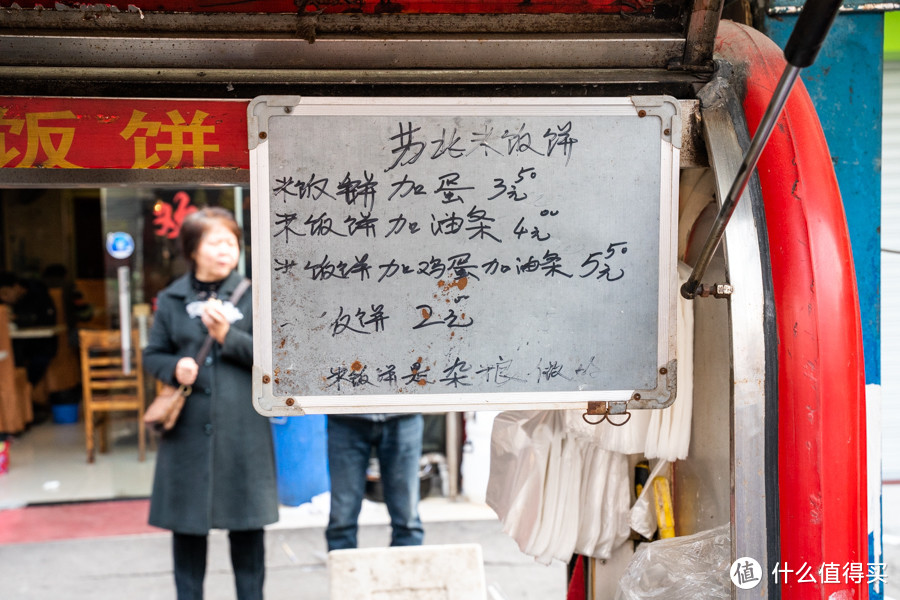 饭 饼
苏北米饭饼
米饭饼加蛋 3元50
米饭饼加油条 4元00
米饭饼加鸡蛋加油条 5元50
饭饼 2元0
米饭饼是杂粮做
值 什么值得买